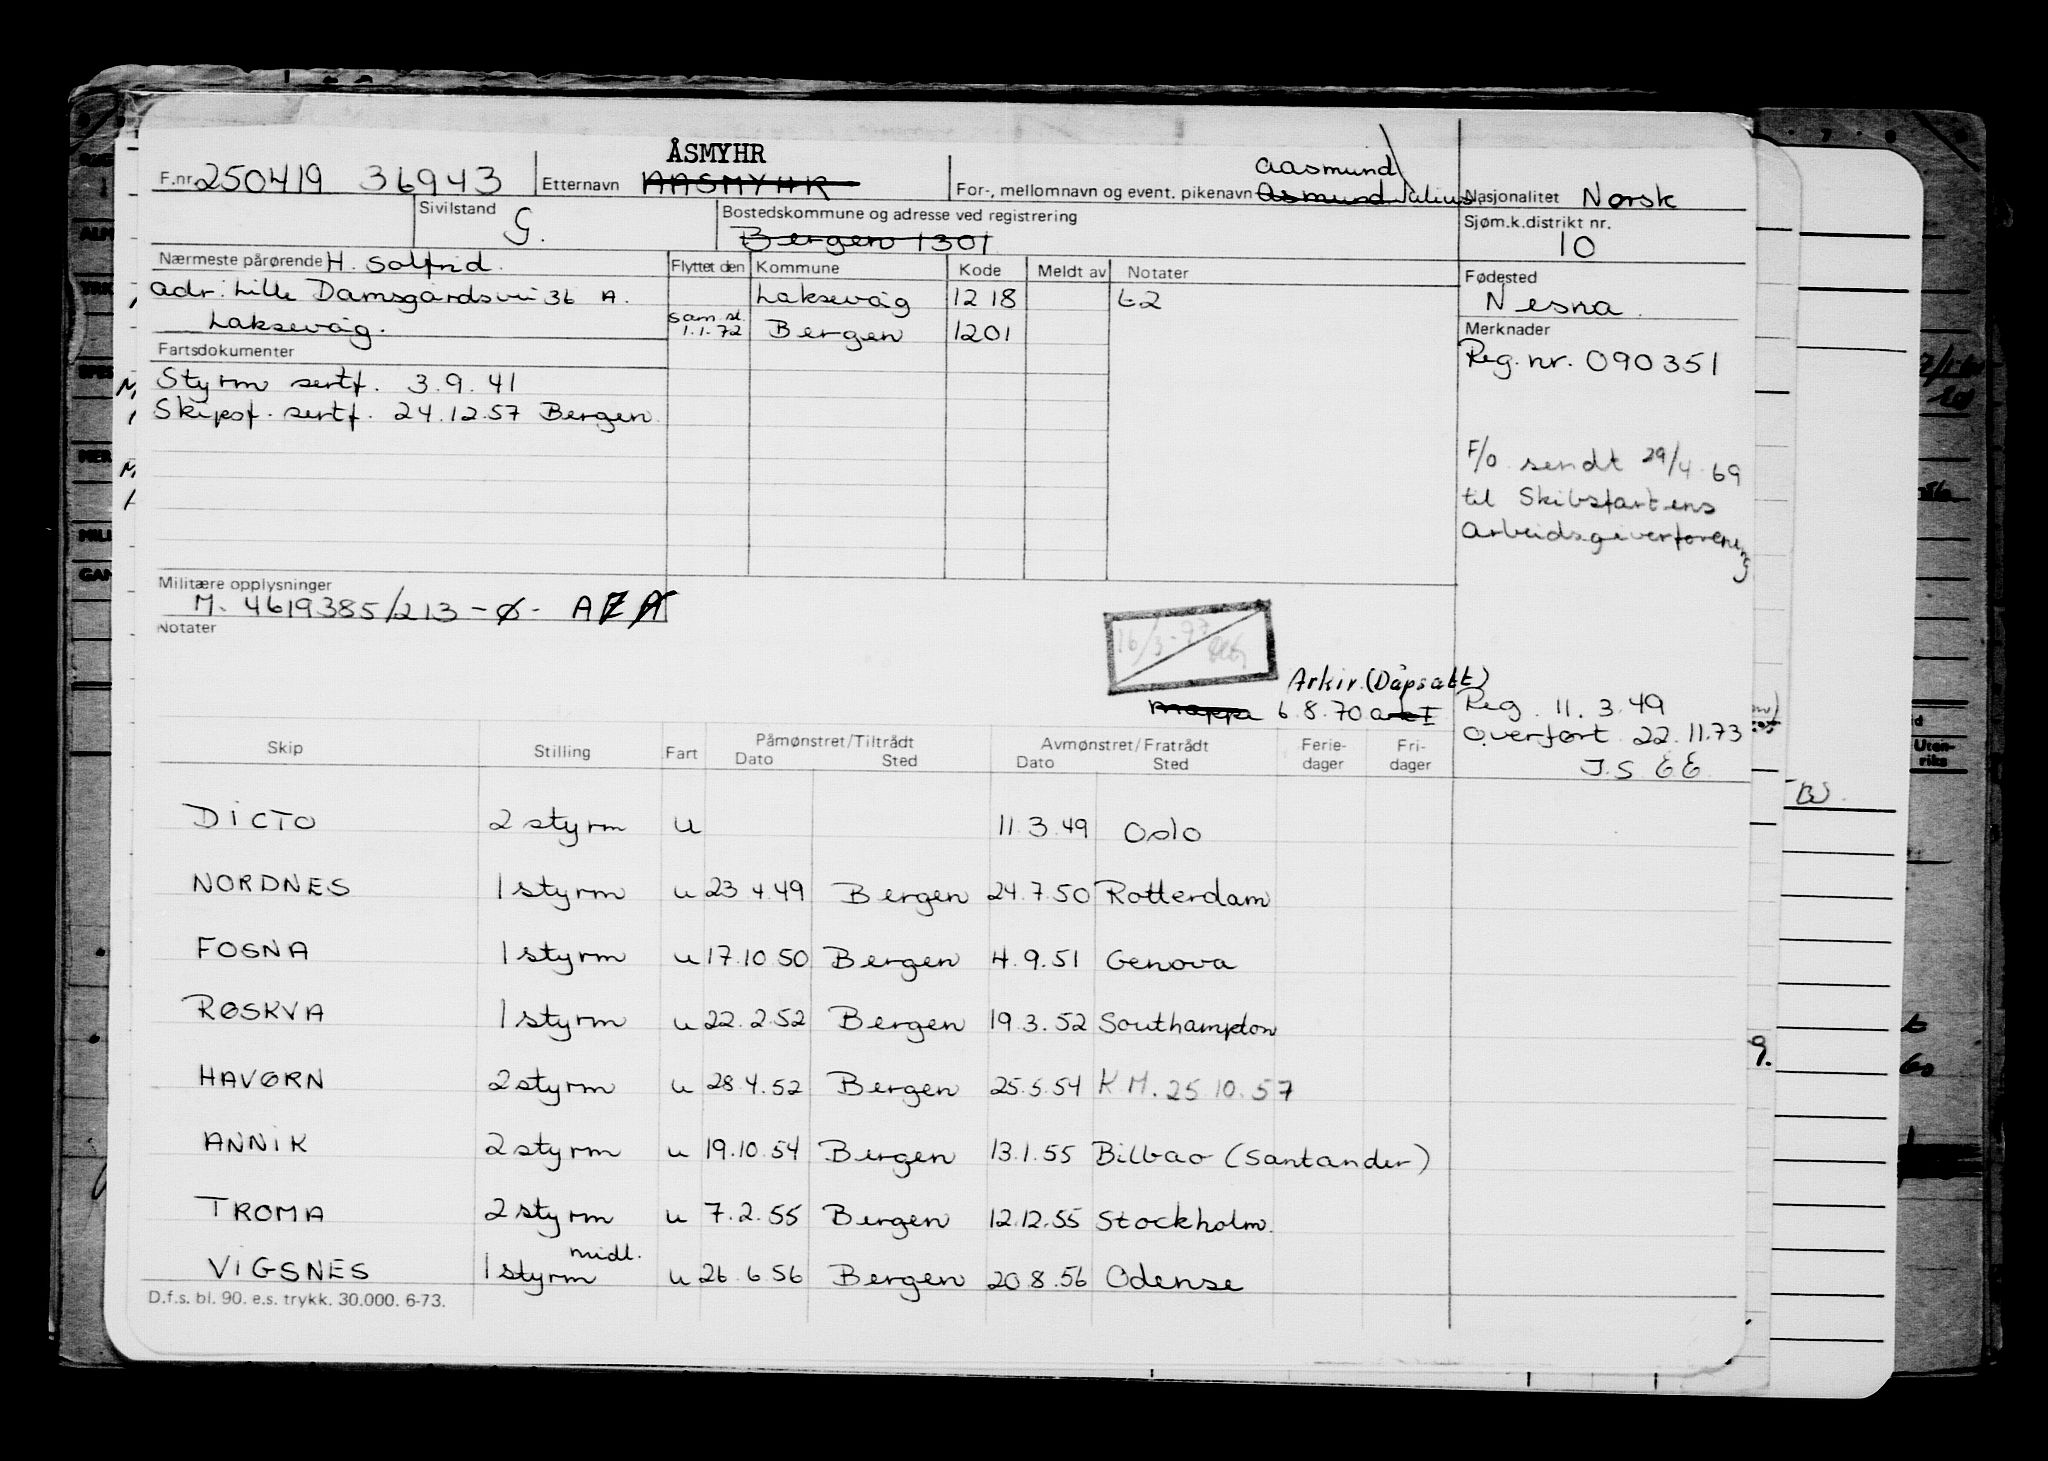 ÅSMYHR
F.nr. 250419 36943 Etternavn AASMYHR For-, mellomnavn og event. pikenavn Aasmund Asmund Julius Nasjonalitet Norsk
Sivilstand G. Bostedskommune og adresse ved registrering Bergen 1301 Sjøm.k.distrikt nr. 10
Nærmeste pårørende H. Solfrid. Flyttet den Kommune Kode Meldt av Notater Fødested
adr: Lille Damsgårdsvei 36 A. Laksevåg 1218 t2 Nesna.
Laksevåg. sam.st. 1.1.72 Bergen 1201 Merknader
Fartsdokumenter Reg.nr. 090351
Styrm sertf. 3.9.41
Skipsf. sertf. 24.12.57 Bergen
F/o sendt 29/4.69
til Skibsfartens
Arbeidsgiverforening
Militære opplysninger
M. 4619385/213-Ø-
Notater
16/3-77
Arkiv.(Dåpsatt)
Mappa 6.8.70 Reg. 11.3.49
Overført 22.11.73
Skip Stilling Fart Påmønstret/Tiltrådt Avmønstret/Fratrådt Ferie- Fri-
Dato Sted Dato Sted dager dager
J.S EE
DICTO 2 styrm u 11.3.49 Oslo
NORDNES 1 styrm u 23 4.49 Bergen 24.7.50 Rotterdam
FOSNA 1 styrm u 17.10 50 Bergen 4.9.51 Genova
RØSKVA 1 styrm u 22.2.52 Bergen 19.3.52 Southampton
HAVØRN 2 styrm u 28 4.52 Bergen 25.5.54 K M. 25.10.57
ANNIK 2 styrm u 19.10.54 Bergen 13.1.55 Bilbao (Santander)
TROMA 2 styrm u 7.2.55 Bergen 12.12.55 Stockholm.
midl.
VIGSNES 1 styrm u 26.6.56 Bergen 20.8.56 Odense
D.f.s. bl. 90. e.s. trykk. 30.000. 6-73.